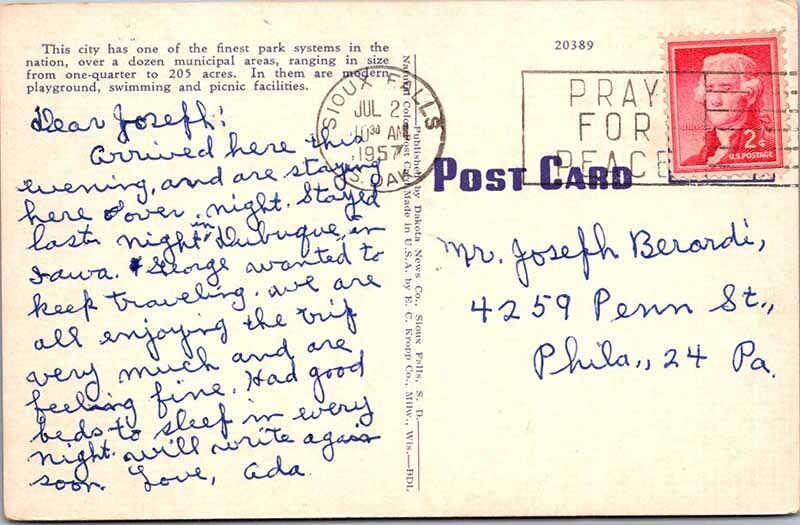 This city has one of the finest park systems in the
nation, over a dozen municipal areas, ranging in size
from one-quarter to 205 acres. In them are modern
playground, swimming and picnic facilities.
Dear Joseph!
Arrived here this
evening, and are staying
here over night. Stayed
last night in Dubuque, in
Iawa. George wanted to
keep traveling. we are
all enjoying the trip
very much and are
feeling fine. Had good
beds to sleep in every
night. will write again
soon. Love, Ada.
Published by Dakota News Co., Sioux Falls, S. D.—
Colorpost Card Made in U.S.A. by E. C. Kropp Co., Milw., Wis.—BDL
20389
SIOUX FALLS
JUL 2
10 30 AM
1957
S. DAK.
PRAY
FOR
PEACE
2¢
U.S. POSTAGE
POST CARD
Mr. Joseph Berardi,
4259 Penn St.,
Phila., 24 Pa.